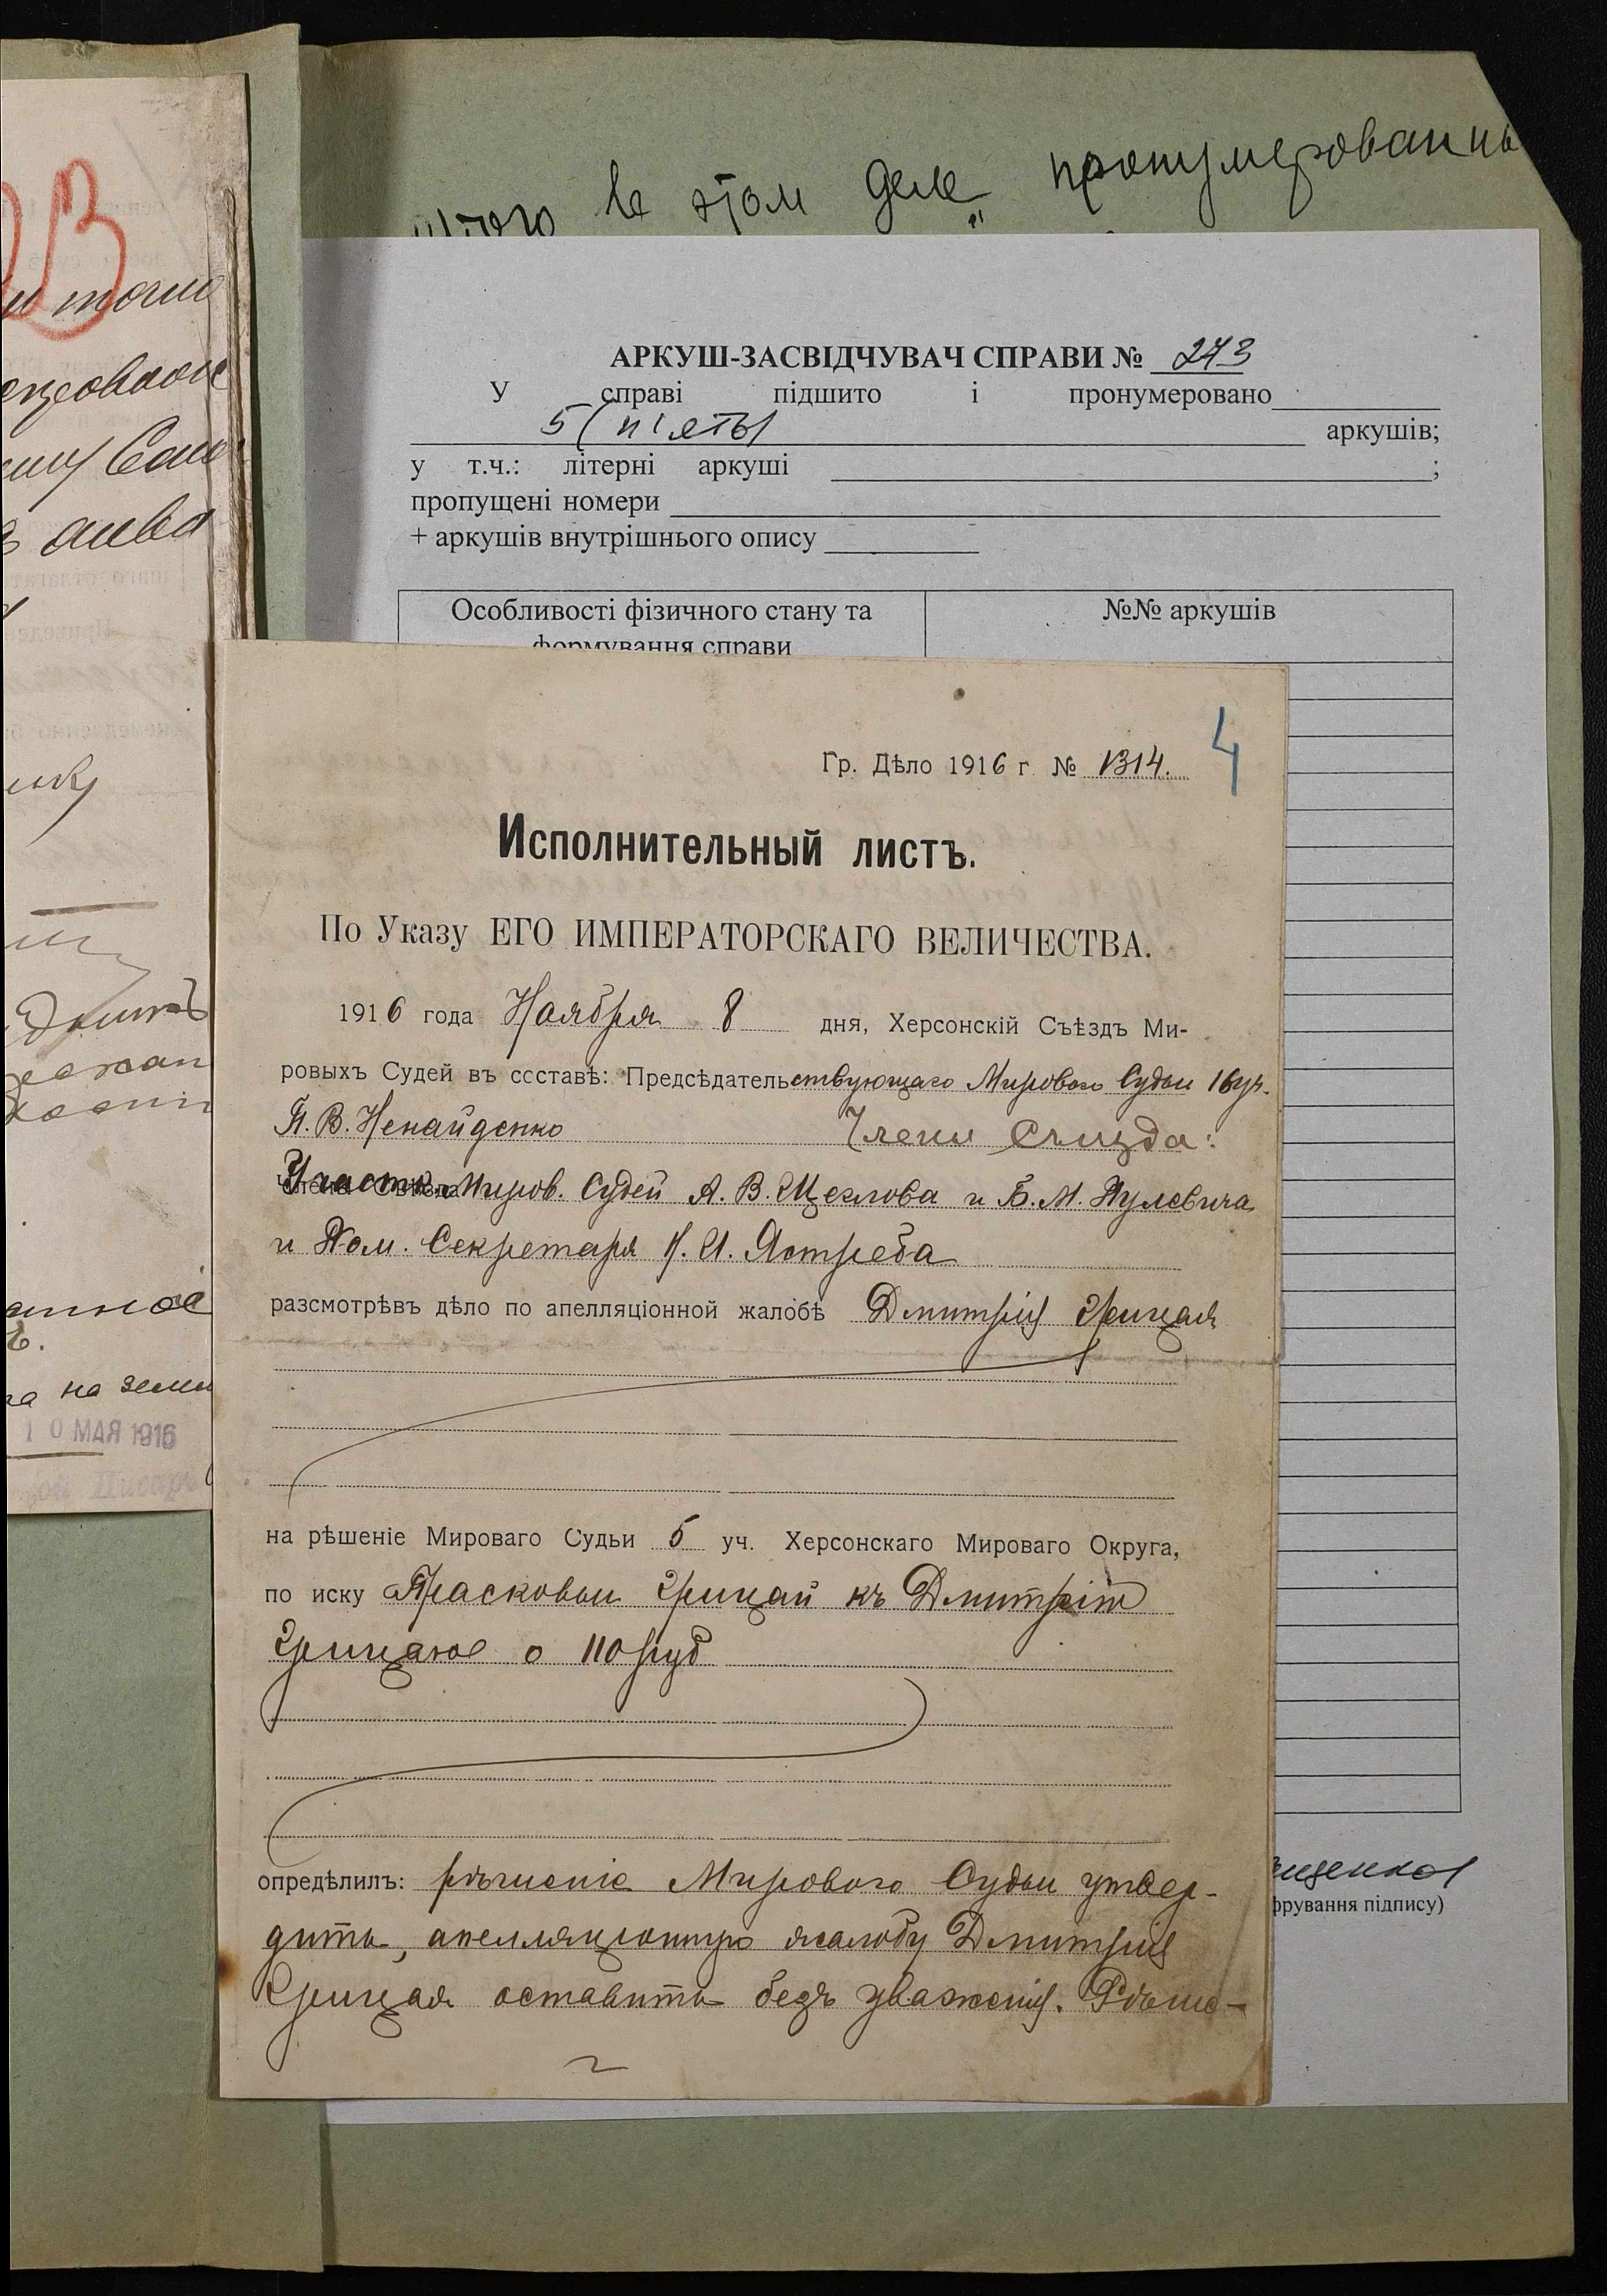 в этом деле пронумерованы
АРКУШ-ЗАСВІДЧУВАЧ СПРАВИ № 273
У справі підшито і пронумеровано
5 (п'яты аркушів;
у т.ч.: літерні аркуші ;
пропущені номери
+ аркушів внутрішнього опису
Особливості фізичного стану та
формування справи
№№ аркушів
фрування підпису)
на земл
10 МАЯ 1916
4
Гр. Дѣло 1916 г № 1314.
Исполнительный листъ.
По Указу ЕГО ИМПЕРАТОРСКАГО ВЕЛИЧЕСТВА.
1916 года Ноября 8 дня, Херсонскій Съѣздъ Ми-
ровыхъ Судей въ составѣ: Предсѣдательствующаго Мирового Судьи 1 6уч.
П. В. Ненайденко Члены Съѣзда:
Участк. Миров. Судей А. В. Щеглова и Б. М. Пулевича
и Пом. Секретаря И. Ястреба
разсмотрѣвъ дѣло по апелляціонной жалобѣ Дмитрія Грицая
на рѣшеніе Мироваго Судьи 5 уч. Херсонскаго Мироваго Округа,
по иску Прасковьи Грицай къ Дмитрію
Грицаю о 110 руб
опредѣлилъ: рѣшеніе Мирового Судьи утвер-
дить, апелляціонную жалобу Дмитрія
Грицая оставить безъ уваженія. Рѣше-